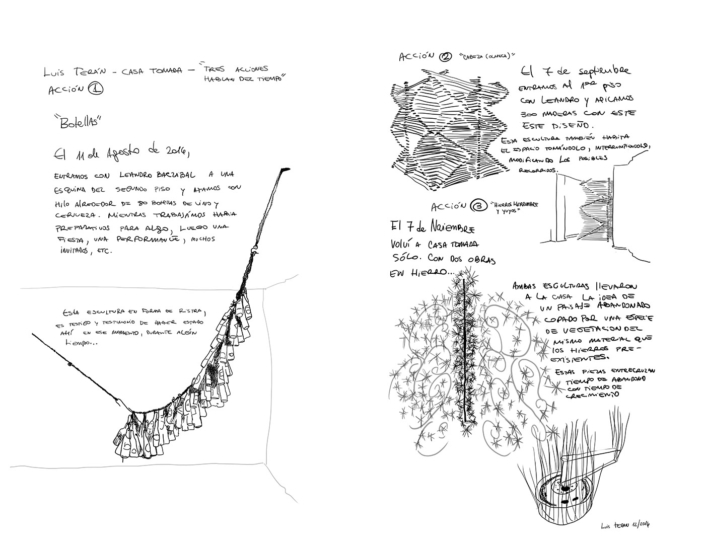 LUIS TERÁN - CASA TOMADA - "TRES ACCIONES
HABLAN DEL TIEMPO"
ACCIÓN 1
"Botellas"
El 11 de Agosto de 2014,
ENTRAMOS CON LEANDRO BARZABAL A UNA
ESQUINA DEL SEGUNDO PISO Y ATAMOS CON
HILO ALREDEDOR DE 90 BOTELLAS DE VINO Y
CERVEZA. MIENTRAS TRABAJÁMOS HABÍA
PREPARATIVOS PARA ALGO, LUEGO UNA
FIESTA, UNA PERFORMANCE, MUCHOS
INVITADOS, ETC.
ESTA ESCULTURA EN FORMA DE RISTRA,
ES TESTIGO Y TESTIMONIO DE HABER ESTADO
AHÍ EN ESE MOMENTO, DURANTE ALGÚN
tiempo...
ACCIÓN 2
El 7 de septiembre
ENTRAMOS AL 1ER PISO
CON LEANDRO Y APILAMOS
300 MADERAS CON ESTE
ESTE DISEÑO.
ESTA ESCULTURA TAMBIÉN HABITA
EL ESPACIO TOMÁNDOLO, INTERRUMPIÉNDOLO,
MODIFICANDO LOS POSIBLES
RECORRIDOS.
ACCIÓN 3
Y YUYO"
El 7 de Noviembre
VOLVÍ A CASA TOMADA
SÓLO. CON DOS OBRAS
EN HIERRO...
AMBAS ESCULTURAS LLEVARON
A LA CASA LA IDEA DE
UN PAISAJE ABANDONADO
COPADO POR UNA ESPECIE
DE VEGETACIÓN DEL
MISMO MATERIAL QUE
LOS HIERROS PRE-
EXISTENTES.
ESTAS PIEZAS ENTRECRUZAN
TIEMPO DE ABANDONO
CON TIEMPO DE
CRECIMIENTO
LUIS TERÁN